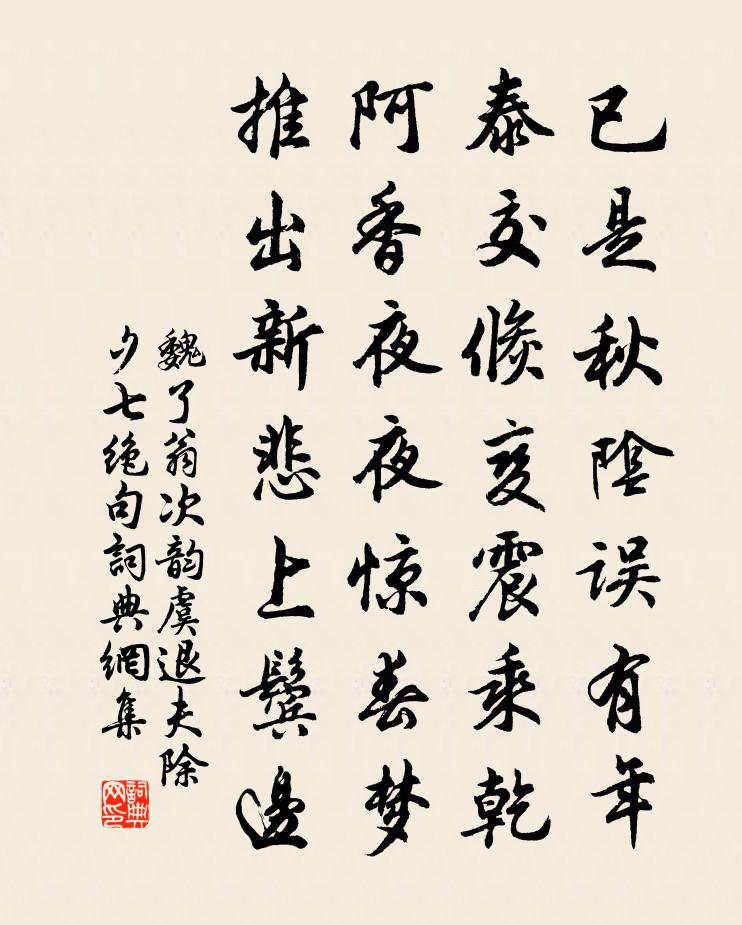 已是秋陰误有年
泰交倏变震乘乾
阿香夜夜惊春梦
推出新悲上鬓邊
魏了翁次韵虞退夫除
夕七绝句詞典網集
詞典网印